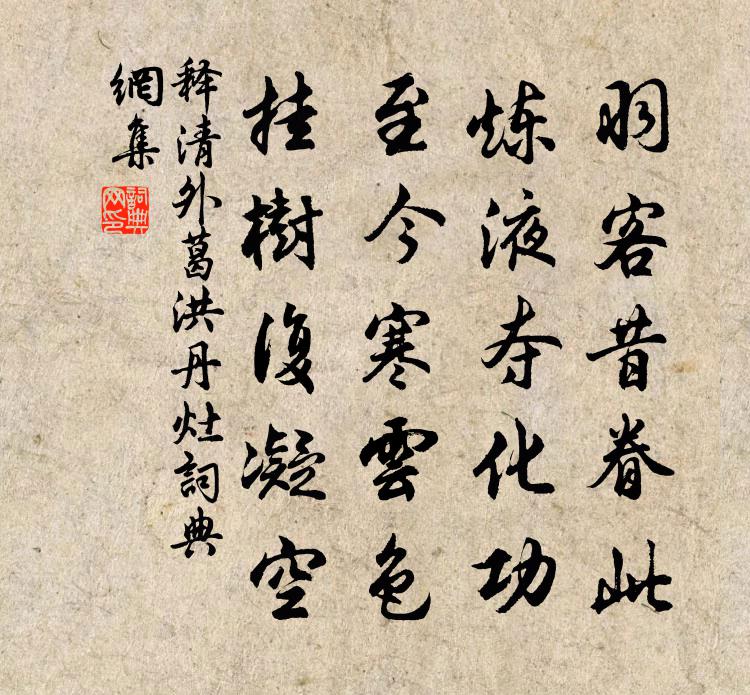 羽客昔眷此
炼液夺化功
至今寒雲色
挂樹復凝空
释清外葛洪丹灶詞典
網集
詞典
网印